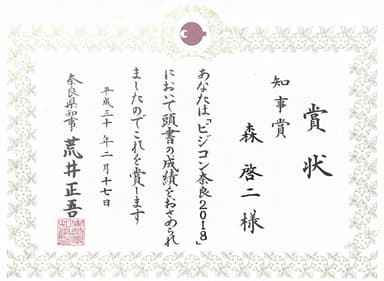 賞状
知事賞
森 啓二 様
あなたは「ビジコン奈良2018」
において頭書の成績をおさめられ
ましたのでこれを賞します
平成三十年二月十七日
奈良県知事 荒井正吾